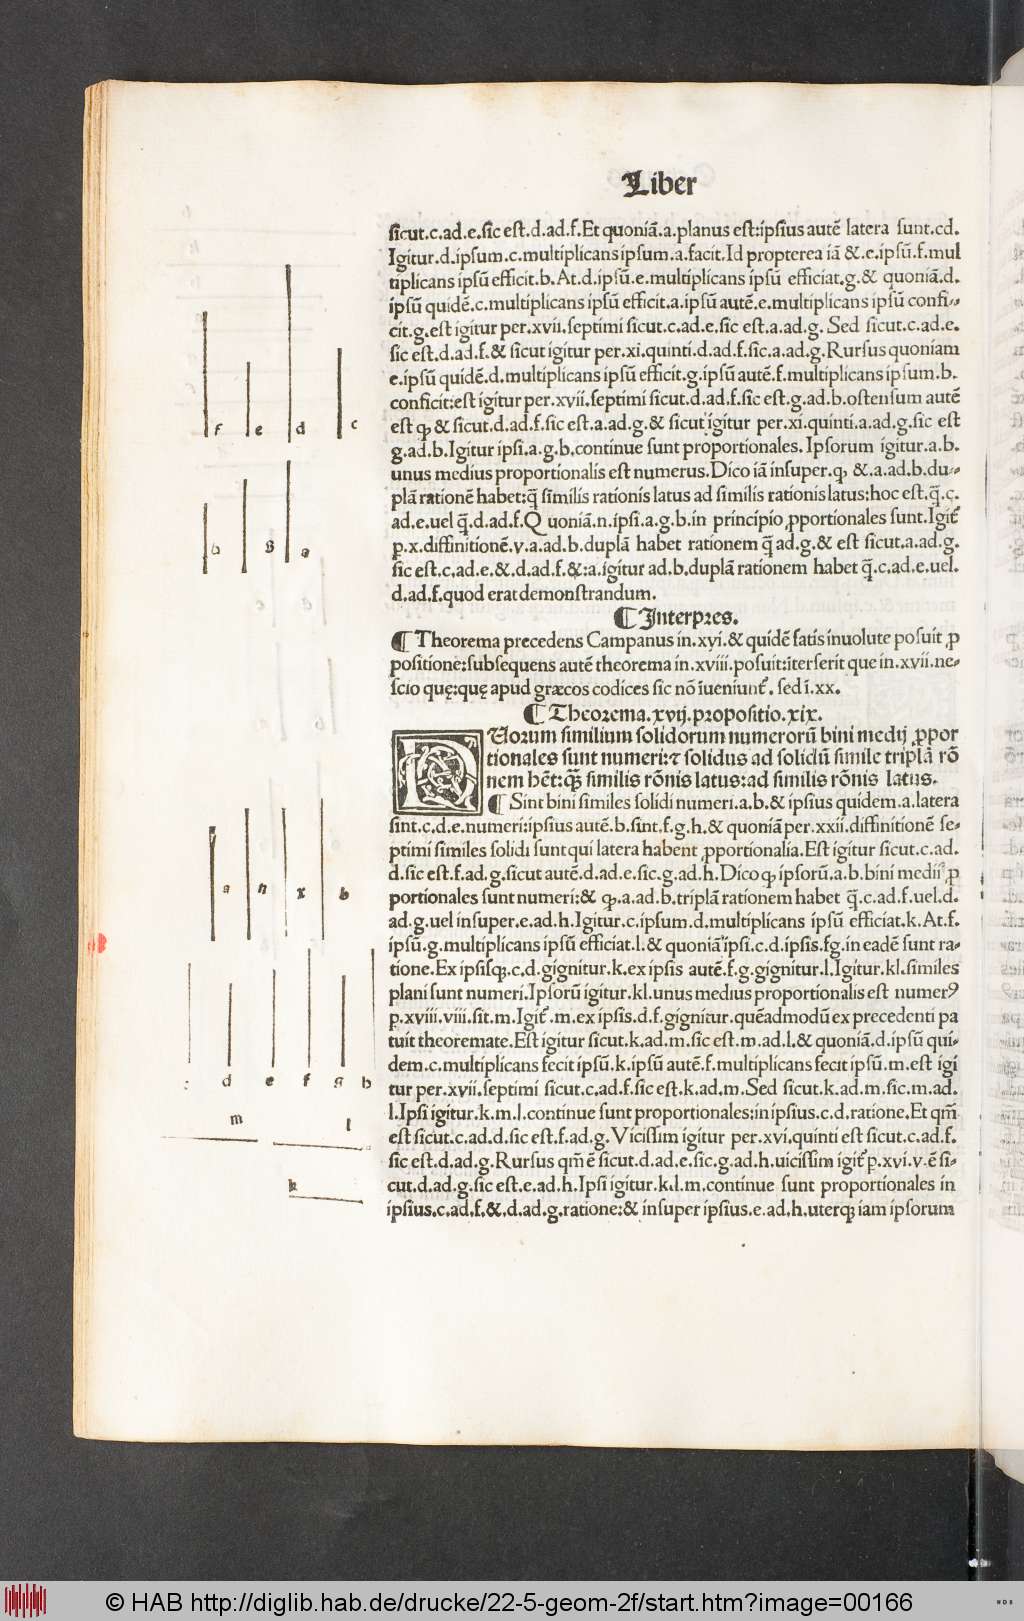 Liber
sicut.c.ad.e.sic est.d.ad.f.Et quoniã.a.planus est:ipsius autẽ latera sunt.cd.
Igitur.d.ipsum.c.multiplicans ipsum.a.facit.Id propterea iã &.e.ipsũ.f.mul
tiplicans ipsũ efficit.b.At.d.ipsũ.e.multiplicans ipsũ efficiat.g.& quoniã.d.
ipsũ quidẽ.c.multiplicans ipsũ efficit.a.ipsũ autẽ.e.multiplicans ipsũ confi-
cit.g.est igitur per.xvii.septimi sicut.c.ad.e.sic est.a.ad.g. Sed sicut.c.ad.e.
sic est.d.ad.f.& sicut igitur per.xi.quinti.d.ad.f.sic.a.ad.g.Rursus quoniam
e.ipsũ quidẽ.d.multiplicans ipsũ efficit.g.ipsũ autẽ.f.multiplicans ipsum.b.
conficit:est igitur per.xvii.septimi sicut.d.ad.f.sic est.g.ad.b.ostensum autẽ
est ꝙ & sicut.d.ad.f.sic est.a.ad.g.& sicut igitur per.xi.quinti.a.ad.g.sic est
g.ad.b.Igitur ipsi.a.g.b.continue sunt proportionales. Ipsorum igitur.a.b.
unus medius proportionalis est numerus.Dico iã insuper.ꝙ &.a.ad.b.du-
plã rationẽ habet:q̃ similis rationis latus ad similis rationis latus:hoc est.q̃.c.
ad.e.uel q̃.d.ad.f.Q uoniã.n.ipsi.a.g.b.in principio ꝓportionales sunt.Igit̃
ꝑ.x.diffinitionẽ.v.a.ad.b.duplã habet rationem q̃ ad.g.& est sicut.a.ad.g.
sic est.c.ad.e.&.d.ad.f.&:a.igitur ad.b.duplã rationem habet q̃.c.ad.e.uel.
d.ad.f.quod erat demonstrandum.
¶ Interpres.
¶ Theorema precedens Campanus in.xvi.& quidẽ satis inuolute posuit ꝓ
positione:subsequens autẽ theorema in.xviii.posuit:iterserit que in.xvii.ne-
scio quę:quę apud græcos codices sic nõ iueniunt̃. sed ĩ.xx.
¶ Theorema.xvij.propositio.xix.
DUorum similium solidorum numerorũ bini medij ꝓpor
tionales sunt numeri:⁊ solidus ad solidũ simile triplã rõ
nem hẽt:q̃ similis rõnis latus:ad similis rõnis latus.
¶ Sint bini similes solidi numeri.a.b.& ipsius quidem.a.latera
sint.c.d.e.numeri:ipsius autẽ.b.sint.f.g.h.& quoniã per.xxii.diffinitionẽ se-
ptimi similes solidi sunt qui latera habent ꝓportionalia.Est igitur sicut.c.ad.
d.sic est.f.ad.g.sicut autẽ.d.ad.e.sic.g.ad.h.Dico ꝙ ipsorũ.a.b.bini medii ꝓ
portionales sunt numeri:& ꝙ.a.ad.b.triplã rationem habet q̃.c.ad.f.uel.d.
ad.g.uel insuper.e.ad.h.Igitur.c.ipsum.d.multiplicans ipsũ efficiat.k.At.f.
ipsũ.g.multiplicans ipsũ efficiat.l.& quoniã ipsi.c.d.ipsis.fg.in eadẽ sunt ra-
tione.Ex ipsisꝗ.c.d.gignitur.k.ex ipsis autẽ.f.g.gignitur.l.Igitur.kl.similes
plani sunt numeri.Ipsorũ igitur.kl.unus medius proportionalis est numerꝰ
ꝑ.xviii.viii.sit.m.Igit̃.m.ex ipsis.d.f.gignitur.quẽadmodũ ex precedenti pa
tuit theoremate.Est igitur sicut.k.ad.m.sic est.m.ad.l.& quoniã.d.ipsũ qui-
dem.c.multiplicans fecit ipsũ.k.ipsũ autẽ.f.multiplicans fecit ipsũ.m.est igi
tur per.xvii.septimi sicut.c.ad.f.sic est.k.ad.m.Sed sicut.k.ad.m.sic.m.ad.
l.Ipsi igitur.k.m.l.continue sunt proportionales:in ipsius.c.d.ratione.Et qm̃
est sicut.c.ad.d.sic est.f.ad.g.Vicissim igitur per.xvi.quinti est sicut.c.ad.f.
sic est.d.ad.g.Rursus qm̃ ẽ sicut.d.ad.e.sic.g.ad.h.uicissim igit̃ ꝑ.xvi.v.ẽ si-
cut.d.ad.g.sic est.e.ad.h.Ipsi igitur.k.l.m.continue sunt proportionales in
ipsius.c.ad.f.&.d.ad.g.ratione:& insuper ipsius.e.ad.h.uterqꝫ iam ipsorum
f e d c
b g a
a n x b
d e f g h
m l
k
© HAB http://diglib.hab.de/drucke/22-5-geom-2f/start.htm?image=00166